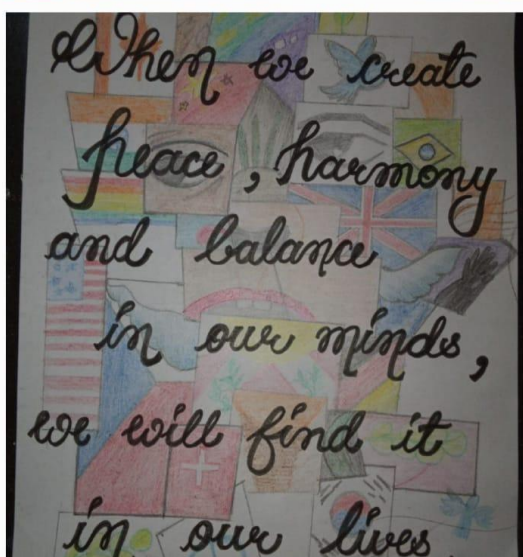 When we create
peace, harmony
and balance
in our minds,
we will find it
in our lives